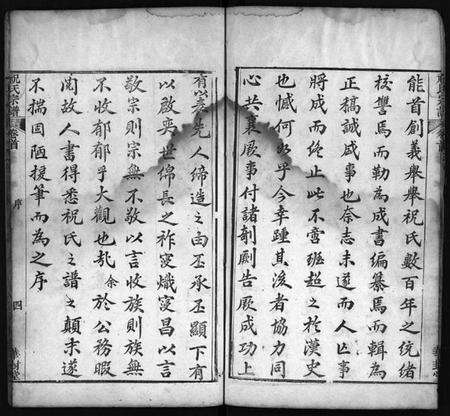 能首創義舉舉祝氏數百年之統緒
校讐焉而勒為成書編纂焉而輯為
正稿誠盛事也奈志未遂而人亡事
將成而終止此不啻班超之於漢史
也憾何如乎今幸踵其後者協力同
心共襄厥事付諸剞劂告厥成功上
有以彥先人締造之由丕承丕顯下有
以啟奕世綿長之祚寖熾寖昌以言
敬宗則宗無不敬以言收族則族無
不收郁郁乎大觀也哉余於公務暇
閱故人書得悉祝氏之譜之顛末遂
不揣固陋援筆而為之序
祝氏宗譜
卷首
序
四